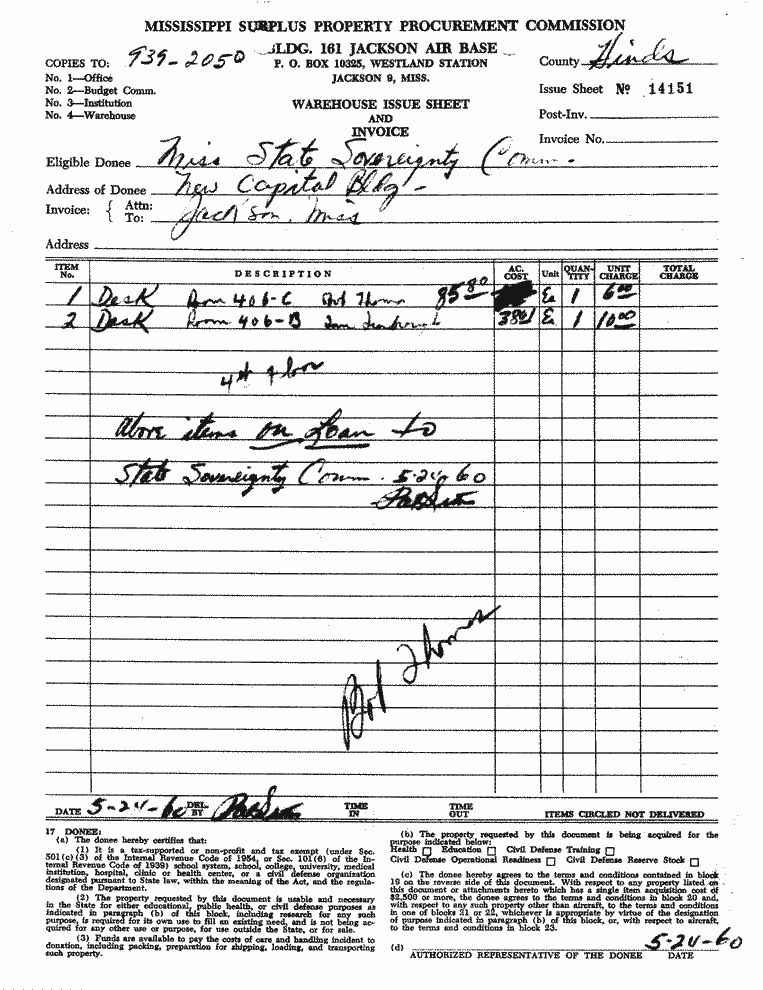 MISSISSIPPI SURPLUS PROPERTY PROCUREMENT COMMISSION
939-2050 BLDG. 161 JACKSON AIR BASE
COPIES TO: P. O. BOX 10325, WESTLAND STATION County Hinds
No. 1—Office JACKSON 9, MISS.
No. 2—Budget Comm. Issue Sheet No 14151
No. 3—Institution WAREHOUSE ISSUE SHEET
No. 4—Warehouse AND Post-Inv.
INVOICE
Invoice No.
Eligible Donee Miss State Sovereignty Comm.
Address of Donee New Capital Bldg -
Invoice: { Attn: To: Jackson. Miss
Address
ITEM No. DESCRIPTION AC. COST Unit QUANTITY UNIT CHARGE TOTAL CHARGE
1 Desk Room 406-C Bob Thomas 85.80 Ea 1 6.00
2 Desk Room 406-B 38.01 E 1 10.00
4th floor
Above items on Loan to
State Sovereignty Comm. 5-24-60
Bob Thomas
DATE 5-24-60 DEL. BY TIME IN TIME OUT ITEMS CIRCLED NOT DELIVERED
17 DONEE:
(a) The donee hereby certifies that:
(1) It is a tax-supported or non-profit and tax exempt (under Sec.
501(c)(3) of the Internal Revenue Code of 1954, or Sec. 101(6) of the In-
ternal Revenue Code of 1939) school system, school, college, university, medical
institution, hospital, clinic or health center, or a civil defense organization
designated pursuant to State law, within the meaning of the Act, and the regula-
tions of the Department.
(2) The property requested by this document is usable and necessary
in the State for either educational, public health, or civil defense purposes as
indicated in paragraph (b) of this block, including research for any such
purpose, is required for its own use to fill an existing need, and is not being ac-
quired for any other use or purpose, for use outside the State, or for sale.
(3) Funds are available to pay the costs of care and handling incident to
donation, including packing, preparation for shipping, loading, and transporting
such property.
(b) The property requested by this document is being acquired for the
purpose indicated below:
Health Education Civil Defense Training
Civil Defense Operational Readiness Civil Defense Reserve Stock
(c) The donee hereby agrees to the terms and conditions contained in block
19 on the reverse side of this document. With respect to any property listed on
this document or attachments hereto which has a single item acquisition cost of
$2,500 or more, the donee agrees to the terms and conditions in block 20 and,
with respect to any such property other than aircraft, to the terms and conditions
in one of blocks 21 or 22, whichever is appropriate by virtue of the designation
of purpose indicated in paragraph (b) of this block, or, with respect to aircraft,
to the terms and conditions in block 23.
5-24-60
(d) AUTHORIZED REPRESENTATIVE OF THE DONEE DATE